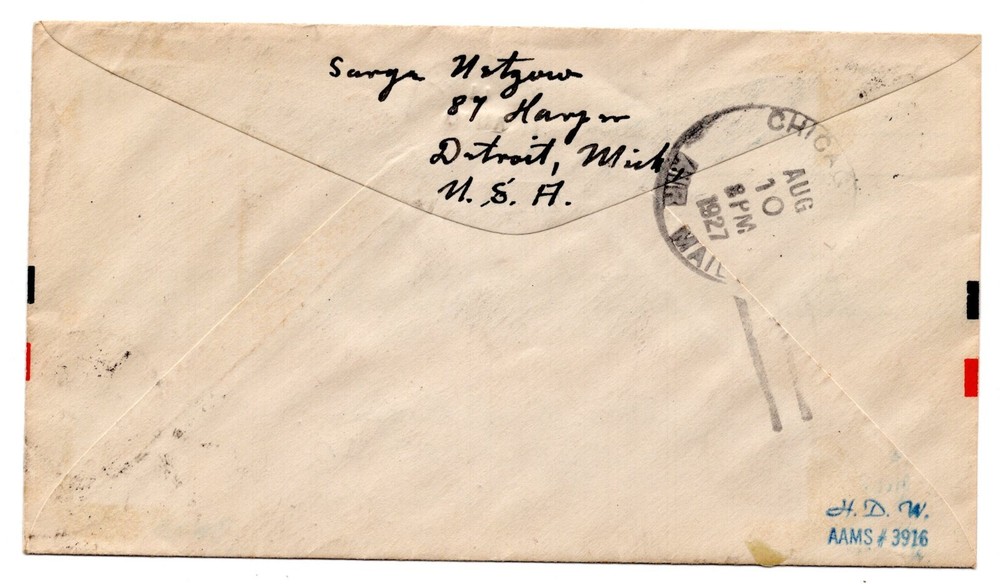 Sarge Netzow
87 Harper
Detroit, Mich
U. S. A.
CHICAGO
AUG
10
8 PM
1927
AIR MAIL
H. D. W.
AAMS # 3916